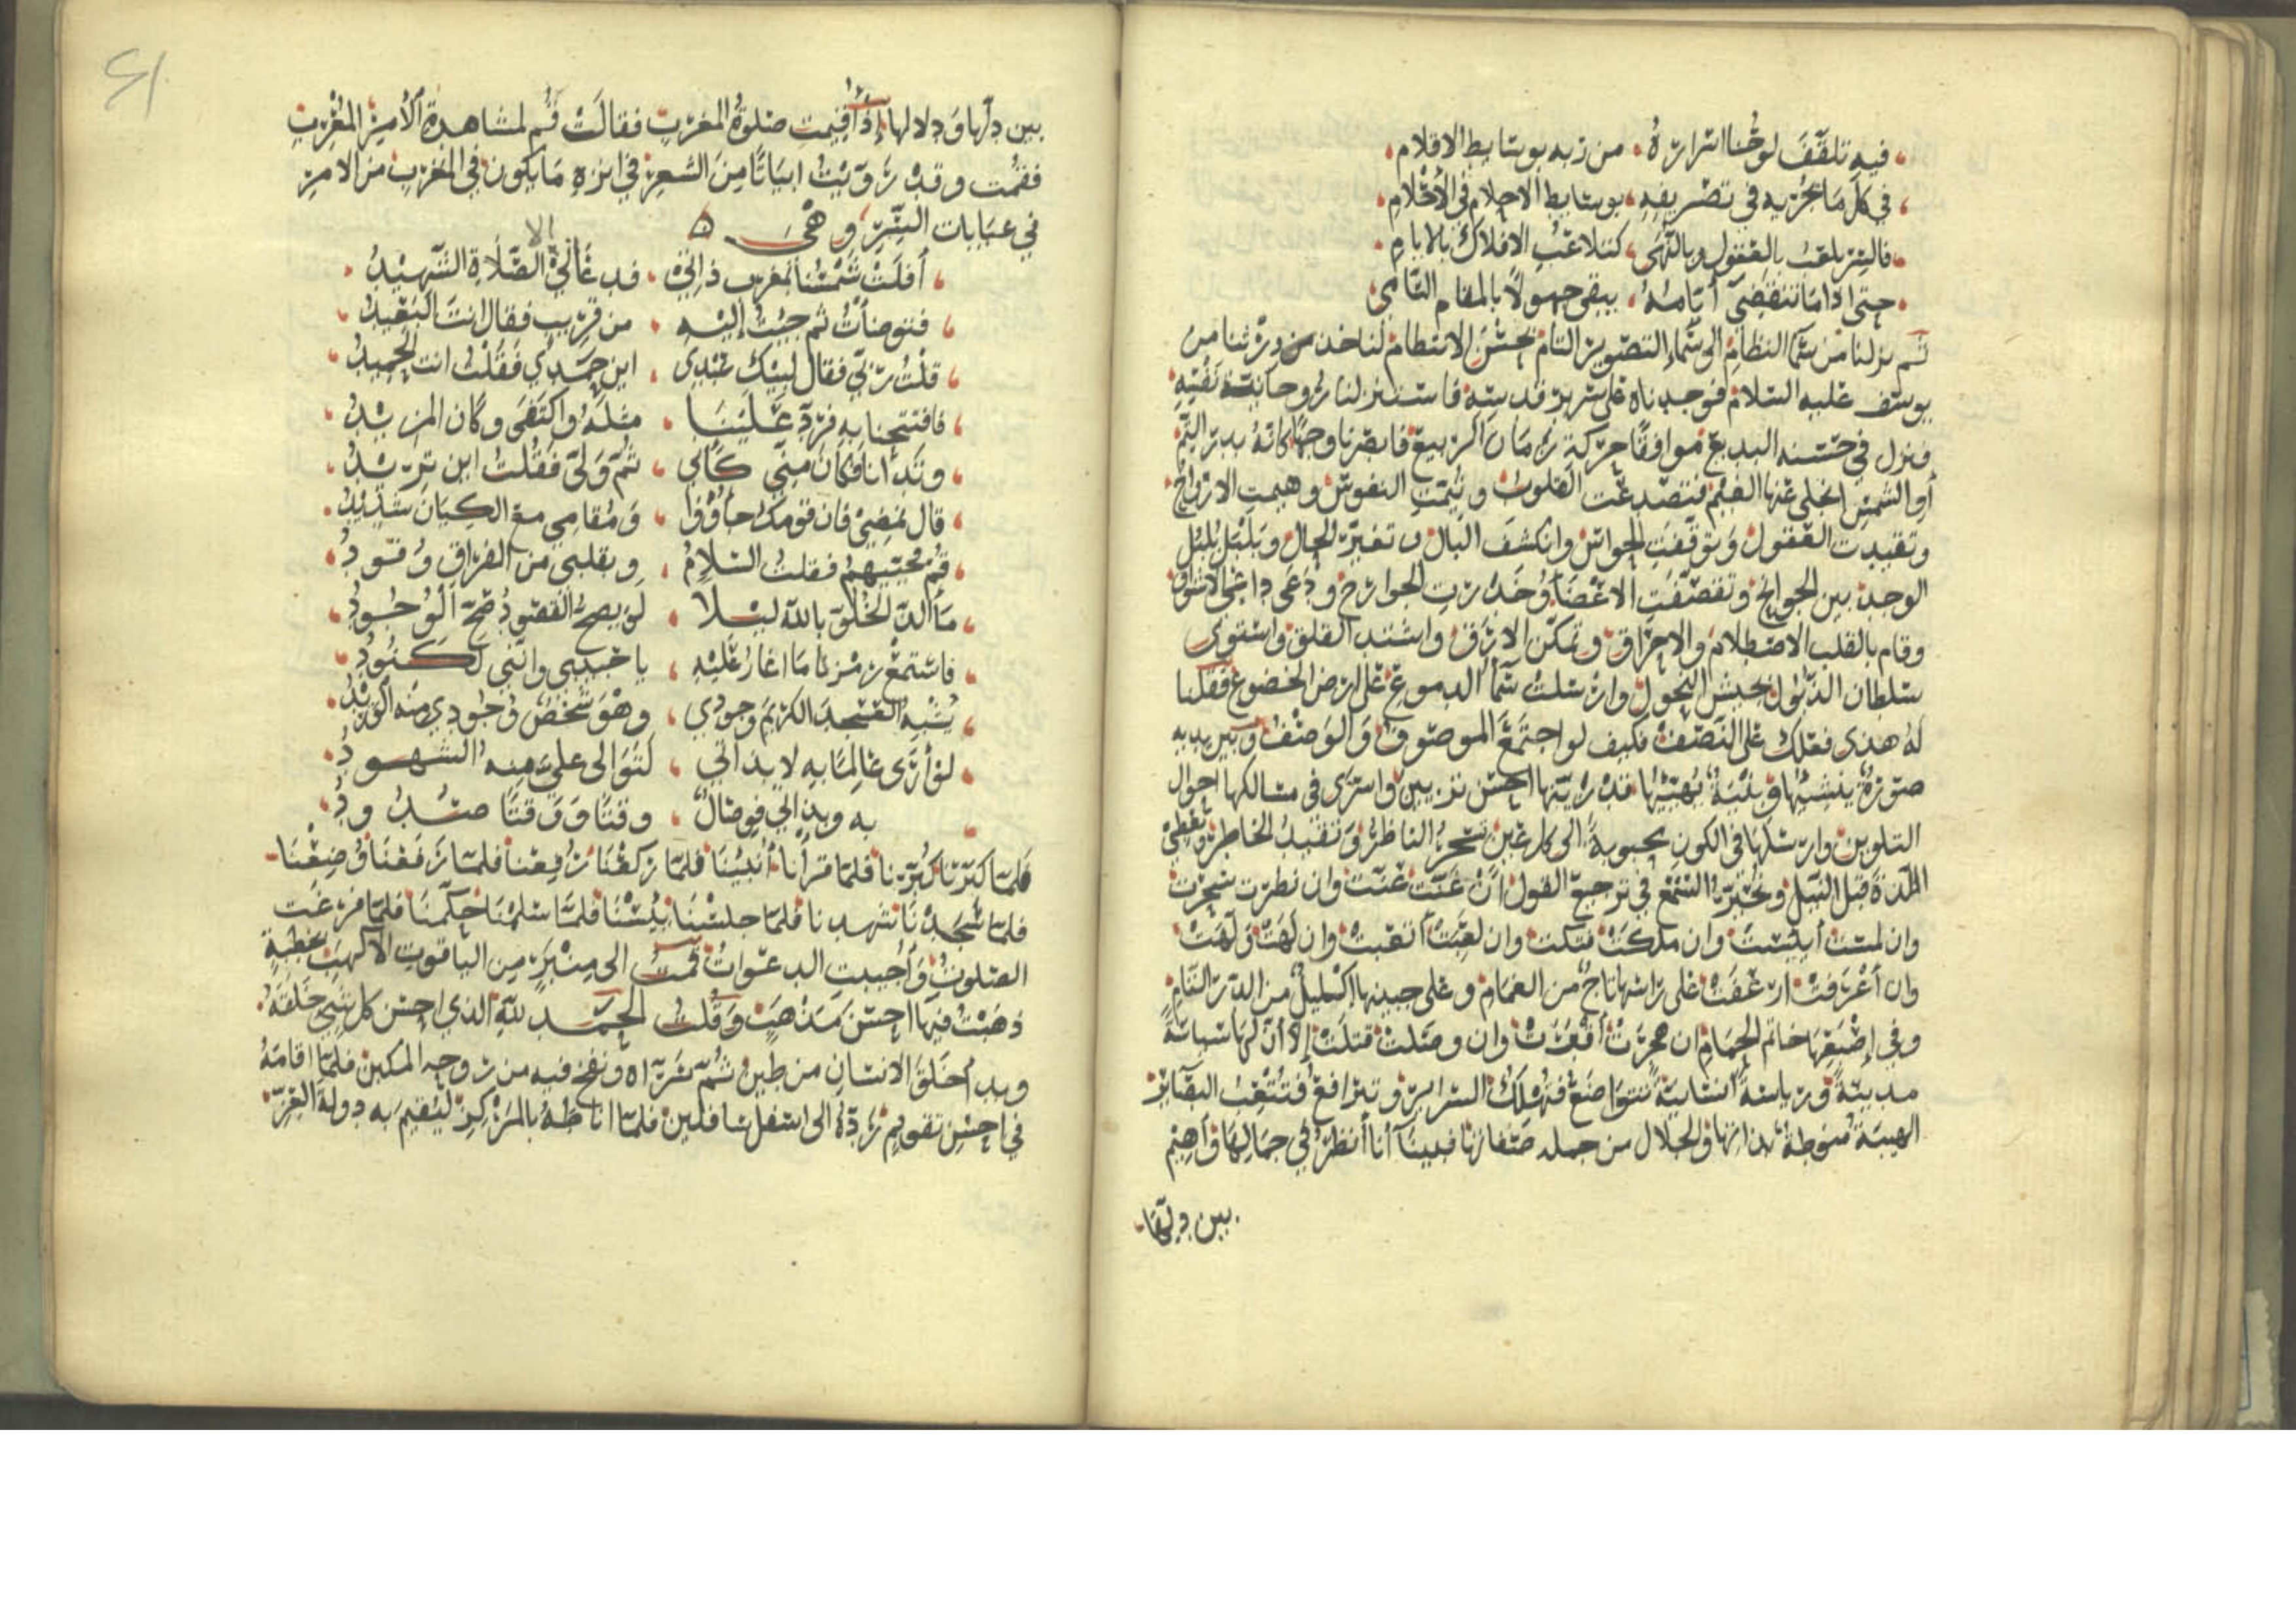 فيه تلقف لوحنا اسراره من ربه بوسايط الاقلام
في كل ما يجريه في تصريفه بوسايط الاحلام في الاحلام
فالسر يلعب بالعقول وبالنهى كتلاعب الافلاك بالايام
حتى اذا ما تنقضي أيامه يبقى جهولا بالمقام السامي
ثم نزلنا من سما النظام الى سماء التصوير التام بحسن الانتظام لناخذ من ورثنا من
يوسف عليه السلام فوجدناه على سرير قدسيته فاستنزلنا روحانيته نفيته
ونزل في حسنه البديع موافقا حركة زمان الربيع فابصرنا وجها كانه بدر التم
أو الشمس انجلى عنها الغيم فتصدعت القلوب وتيمت النفوس وهيمت الارواح
وتقيدت العقول وتوقفت الحواس وانكشف البال وتغير الحال وبلبل بلبل
الوجد بين الجوانح وتقصفت الاعضا وخدرت الجوارح ودعى داعى الاشواق
وقام بالقلب الاصطلام والاحراق وتمكن الارق واشتد القلق واستوى
سلطان الذبول بجيش النحول وارسلت سما الدموع على ارض الخضوع فقلنا
له هذى فعلك على النصف فكيف لو اجتمع الموصوف والوصف وبين يديه
صورة ينشيها وبنية يهيئها قد زينها احسن تزيين واسرى في مسالكها احوال
التلوين وارسلها في الكون محبوبة الى كل عين تسحر الناظر وتقيد الخاطر وتعطى
اللذة قبل النيل وتخير السمع في ترجيع القول ان غنت غنت وان نطرت سحرت
وان لمست أيبست وان ملكت فتكت وان لعبت أتعبت وان لهت ولهت
وان أعرفت ارعفت على راسها تاج من الغمام وعلى جبينها اكليل من الدر التام
وفي إصبعها خاتم الحمام ان هجرت أقفرت وان وصلت قتلت إلا أن لها سياسة
مدينة ورياسة انسانية تتواضع فتهلك السراير وتترافع فتتعب البصاير
الهيبة منوطة بذاتها والجلال من جمله صفاتها فبينا أنا أنظر في جمالها وأهيم
بين دلها
41
بين دلها ودلالها إذ أقيمت صلوة المغرب فقالت قم لمشاهدة الأمير المغرب
فقمت وقد رويت ابياتا من الشعر في ابره ما يكون في المغرب من الامر
في عبابات السر وهي
أفلت شمسنا بمغرب ذاتي قد عاني الا الصلاة الشهيد
فتوضأت ثم جيت إليه من قريب فقال انت البعيد
قلت ربي فقال لبيك عبدي اين حمدي فقلت انت الحميد
فافتتحنا به فرد علينا مثله واكتفى وكان المزيد
وتدانا فكان مني كاني ثم ولى فقلت اين تريد
قال نمضي فان قومك جاؤوا ومقامي مع الكيان شديد
قم محييهم فقلت السلام وبقلبي من الفراق وقود
ما ألذ الخلو بالله ليلا لو يصح القصود صح الوجود
فاستمع رمزنا ما اغار عليه يا حبيبي وانني لكنود
يشبه العسجد الكريم وجودي وهو شخص وجودي منه الوريد
لو أرى عالما به لا بداني لتوالى علي منه الشهود
به وبدا لي فوصال وقتا ووقتا صدود
فلما كبرنا كبرنا فلما قرأنا أنبينا فلما ركعنا رفعنا فلما رفعنا وضعنا
فلما سجدنا شهدنا فلما جلسنا يئسنا فلما سلمنا حكمنا فلما فرغت
الصلوت وأجيبت الدعوات قمت الى منبر من الياقوت الاكهب بخطبة
ذهبت فيها احسن مذهب وقلت الحمد لله الذي احسن كل شي خلقه
وبدأ خلق الانسان من طين ثم سواه ونفخ فيه من روحه المكين فلما اقامه
في احسن تقويم رده الى اسفل سافلين فلما اناطه بالمركز ليقيم به دولة العز